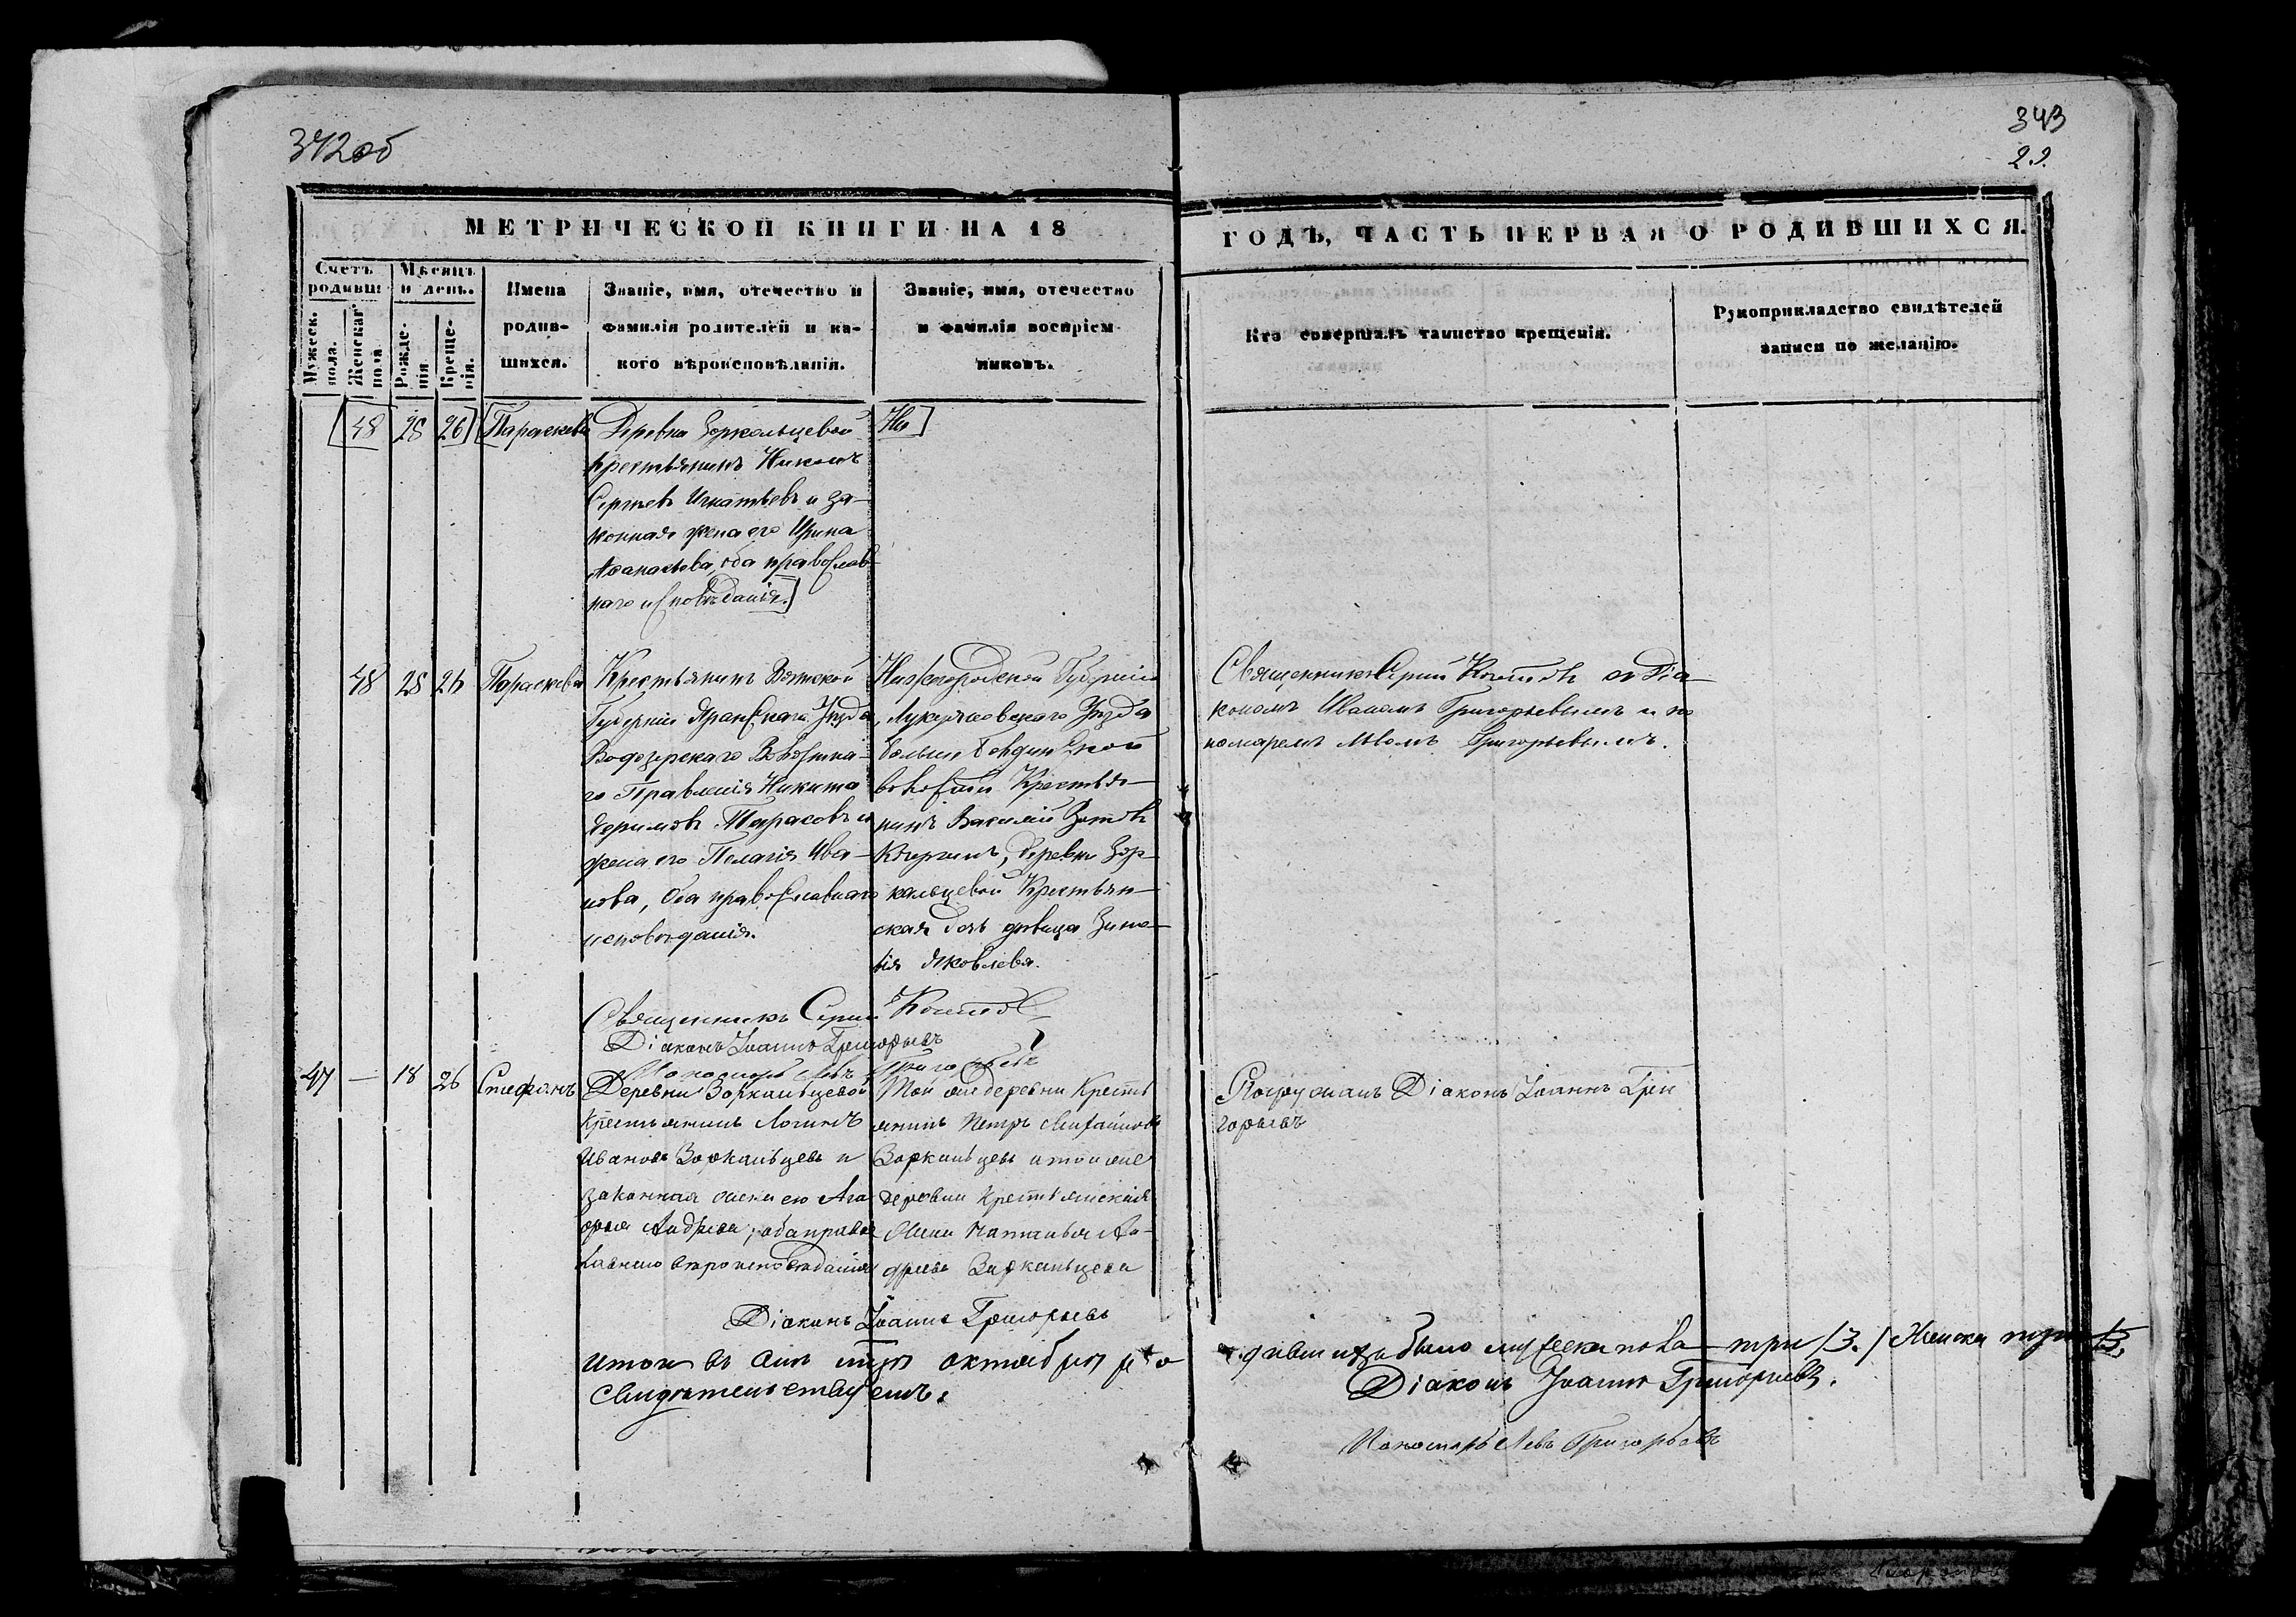 342об
343
29.
МЕТРИЧЕСКОЙ КНИГИ НА 18
ГОДЪ, ЧАСТЬ ПЕРВАЯ О РОДИВШИХСЯ.
Счетъ родивш
Мужеск. пола.
Женскаг пола
Мѣсяцъ и день.
Рожде-нія
Креще-нія.
Имена
родив-
шихся.
Званіе, имя, отечество и
фамилія родителей и ка-
кого вѣроисповѣданія.
Званіе, имя, отечество
и фамилія воспріем-
никовъ.
Кто совершалъ таинство крещенія.
Рукоприкладство свидѣтелей
записи по желанію.
[48 28 26] [Параскева Деревни Зоркальцевой Ни]
Крестьянинъ
Сергѣевъ Игнатьевъ и за-
конная жена его Ирина
Аѳанасьева, оба православ-
наго исповѣданія.]
48 28 26 Параскева
Крестьянинъ Вятской
Губерніи Яранскаго Уѣзда
Водозерскаго Волостна-
го Правленія Никита
Тарасовъ и
жена его Пелагія Ива-
нова, оба православнаго
исповѣданія.
Нижегородской Губерніи
Лукояновскаго Уѣзда
волости Крестья-
нинъ Василій Зотовъ
деревни Зор-
кальцевой Крестьян-
ская дочь дѣвица Зино-
вія Яковлева.
Священникъ Сергій съ Діа-
кономъ Иваномъ Григорьевымъ и по
номаремъ Львомъ Григорьевымъ.
Священникъ Сергій
Діаконъ Іоаннъ Григорьевъ
Пономарь Левъ Григорьевъ
47 — 18 26 Стефанъ
Деревни Зоркальцевой
Крестьянинъ Логинъ
Ивановъ Зоркальцевъ и
законная жена его Ага
фья Андреева, оба право
славнаго вероисповѣданія
Той же деревни Кресть
янинъ Петръ Михайловъ
Зоркальцевъ и той же
деревни крестьянская
жена Наталья Ан-
дреева Зоркальцева
Погружалъ Діаконъ Іоаннъ Гри
горьевъ
Діаконъ Іоаннъ Григорьевъ
Итого въ семъ октября ро
дившихся было мужеска пола три /3./ Женска три /3.
свидѣтельствуемъ.
Діаконъ Іоаннъ Григорьевъ.
Пономарь Левъ Григорьевъ